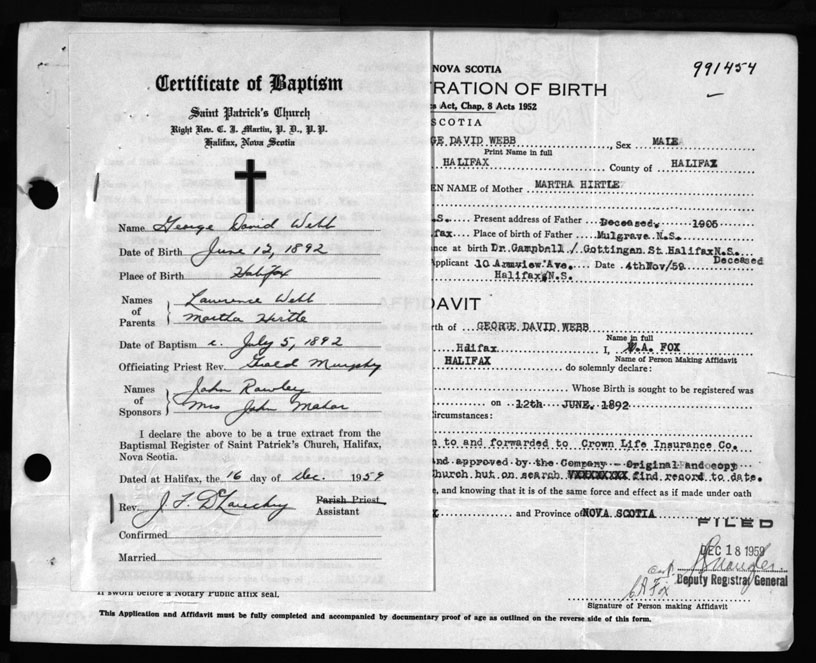 Certificate of Baptism
Saint Patrick's Church
Right Rev. C. J. Martin, P. D., P. P.
Halifax, Nova Scotia
Name George David Webb
Date of Birth June 12, 1892
Place of Birth Halifax
Names of Parents Lawrence Webb
Martha Hirtle
Date of Baptism July 5, 1892
Officiating Priest Rev. Gerald Murphy
Names of Sponsors John Rawley
Mrs John Mahar
I declare the above to be a true extract from the
Baptismal Register of Saint Patrick's Church, Halifax,
Nova Scotia.
Dated at Halifax, the 16 day of Dec. 1959
Rev. J. F.
Parish Priest
Assistant
Confirmed
Married
NOVA SCOTIA
991454
TRATION OF BIRTH
s Act, Chap. 8 Acts 1952
SCOTIA
GE DAVID WEBB, Sex MALE
Print Name in full
HALIFAX County of HALIFAX
EN NAME of Mother MARTHA HIRTLE
.S. Present address of Father Deceased, 1905
fax Place of birth of Father Mulgrave N.S.
nce at birth Dr. Campbell / Gottingan St. Halifax N.S.
Deceased
pplicant 10 Armview Ave. Date 4th Nov/59
Halifax N.S.
DAVIT
rth of GEORGE DAVID WEBB
Name in full
Halifax I, W.A. FOX
Name of Person Making Affidavit
HALIFAX do solemnly declare:
Whose Birth is sought to be registered was
on 12th JUNE, 1892
ircumstances:
n to and forwarded to Crown Life Insurance Co.
nd approved by the Company - Original and copy
hurch but on search find record to date.
e, and knowing that it is of the same force and effect as if made under oath
X and Province of NOVA SCOTIA
FILED
DEC 18 1959
Deputy Registrar General
Fox
Signature of Person making Affidavit
If sworn before a Notary Public affix seal.
This Application and Affidavit must be fully completed and accompanied by documentary proof of age as outlined on the reverse side of this form.